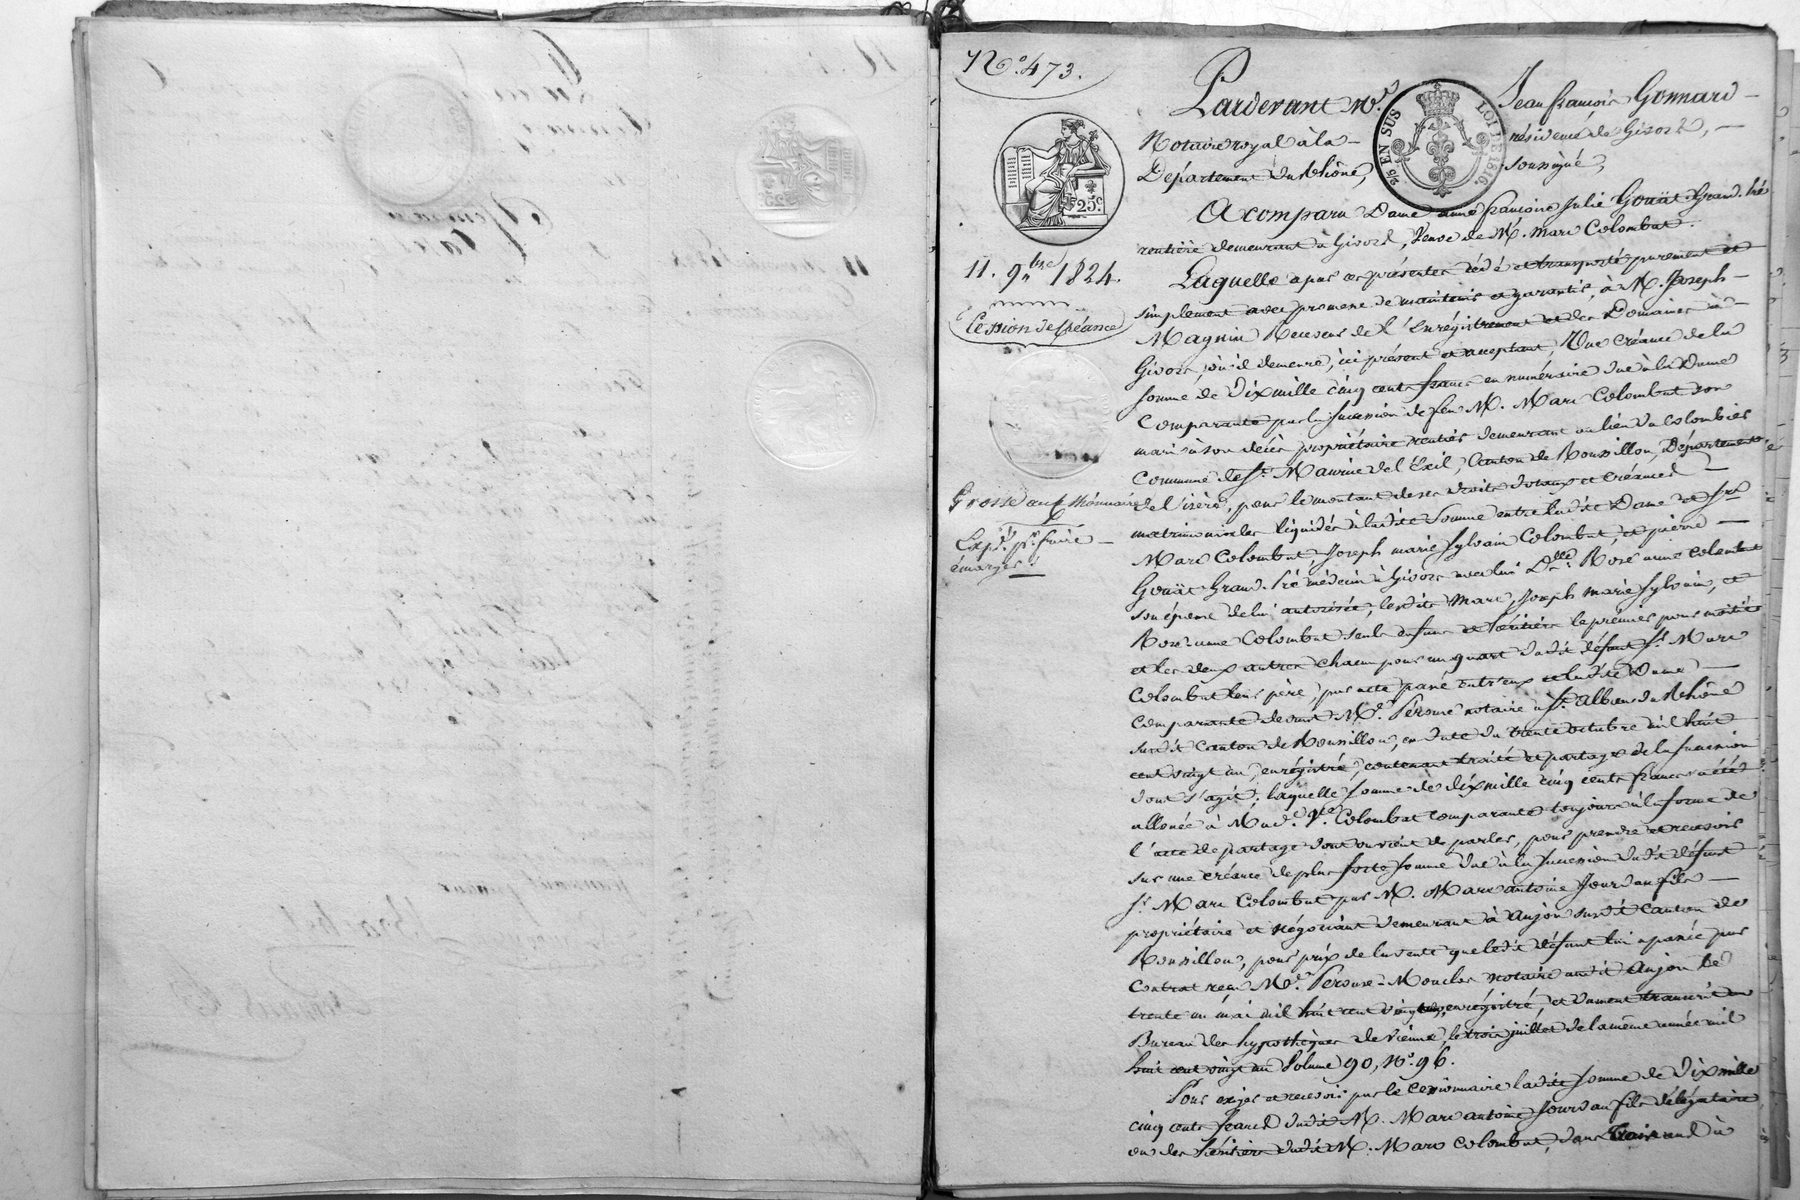 N.° 473.
11. 9.bre 1824.
Cession de Créance
Grosse aux Mémoires
Expd. pr. faire
émarger
25c.
2/5 EN SUS
LOI DE 1816.
Pardevant Me. Jean françois Gonnard
Notaire royal à la résidence de Givors,
Département du Rhône, soussigné,
A comparu Dame anne françoise Julie Gouät Grand-Pré
rentière demeurant à Givors, Veuve de M. Marc Colombat.
Laquelle a par ces présentes cédé et transporté purement et
simplement avec promesse de maintenir et garantir, à M. Joseph
Magnin Receveur de l'Enrégistrement et des Domaines à
Givors, où il demeure, ici présent et acceptant, Une créance de la
somme de Dix mille cinq cents francs en numéraire due à la Dame
Comparante par la succession de feu M. Marc Colombat son
mari à son décès propriétaire rentier demeurant au lieu du Colombier
Commune de St. Maurice de l'Exil, Canton de Roussillon, Département
de l'isère, pour le montant de ses droits dotaux et créances
matrimoniales liquidés à ladite Somme entre ladite Dame et Srs
Marc Colombat, Joseph marie Sylvain Colombat, et pierre
Gouät Grand-Pré médecin à Givors avec lui Dlle. Rose anne Colombat
son épouse de lui autorisée, lesdits Marc, Joseph Marie Sylvain, et
Rose anne Colombat seuls enfans et héritiers le premier pour moitié
et les deux autres chacun pour un quart dudit défunt Sr. Marc
Colombat leur père, par acte passé entr'eux et ladite Dame
Comparante devant Me. Pérouse notaire à St. alban du Rhône
susdit Canton de Roussillon, en date du trente octobre mil huit
cent vingt un, enrégistré, contenant traité et partage de la succession
dont s'agit; laquelle somme de dix mille cinq cents francs a été
allouée à Made. Ve. Colombat comparante toujours à la forme de
l'acte de partage dont on vient de parler, pour prendre et recevoir
sur une créance de plus forte somme due à la succession dudit défunt
Sr. Marc Colombat par M. Marc antoine Jourdan fils
propriétaire et négociant demeurant à Anjou susdit Canton de
Roussillon, pour prix de la vente que ledit défunt lui a passée par
Contrat reçu Me. Pérouse-Monclos notaire audit Anjou le
trente un mai mil huit cent vingt un, enrégistré, et dument transcrit au
Bureau des hypothèques de Vienne, le trois juillet de la même année mil
huit cent vingt un Volume 90, N.° 96.
Pour exiger et recevoir par le Cessionnaire ladite somme de Dix mille
cinq cents francs dudit M. Marc antoine Jourdan fils délégataire
ou des héritiers dudit M. Marc Colombat, dans trois ans à